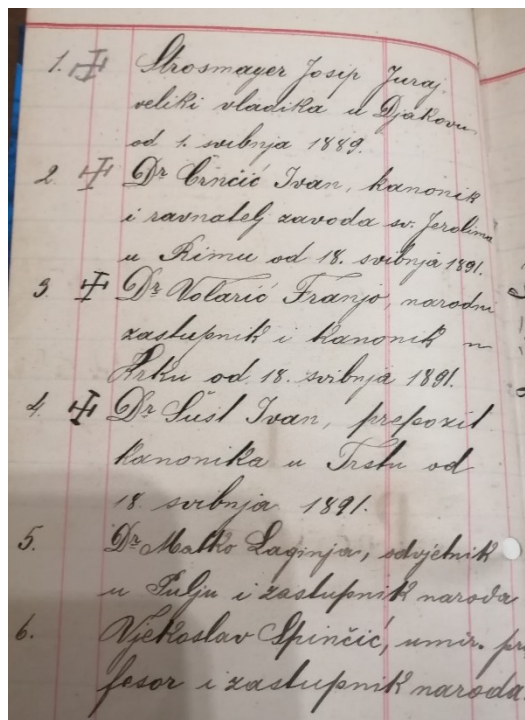 1. Strosmayer Josip Juraj
veliki vladika u Djakovu
od 1. svibnja 1889.
2. Dr Crnčić Ivan, kanonik
i ravnatelj zavoda sv. Jerolima
u Rimu od 18. svibnja 1891.
3. Dr Volarić Franjo, narodni
zastupnik i kanonik u
Krku od 18. svibnja 1891.
4. Dr Šust Ivan, prepozit
kanonika u Trstu od
18. svibnja 1891.
5. Dr Matko Laginja, odvjetnik
u Pulju i zastupnik naroda
6. Vjekoslav Spinčić, umir. pro
fesor i zastupnik naroda.